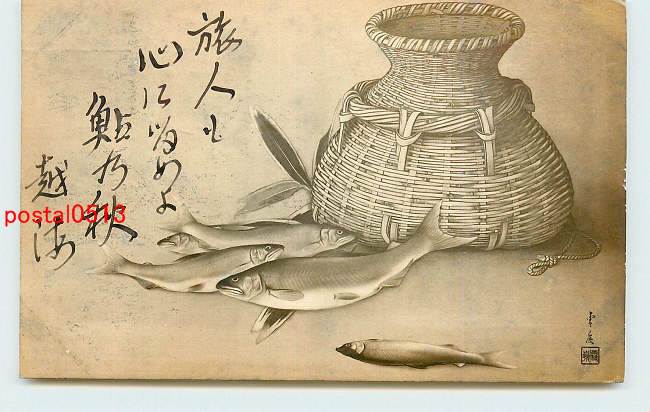 旅人も
心に留めよ
鮎の秋
越海
postal0513